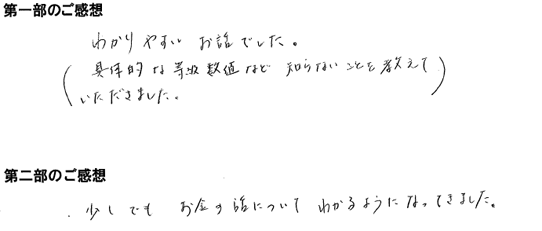 第一部のご感想
わかりやすい お話でした。
(具体的な等級数値など 知らないことを教えて
いただきました。)
第二部のご感想
.少しでも お金の話について わかるようになってきました。